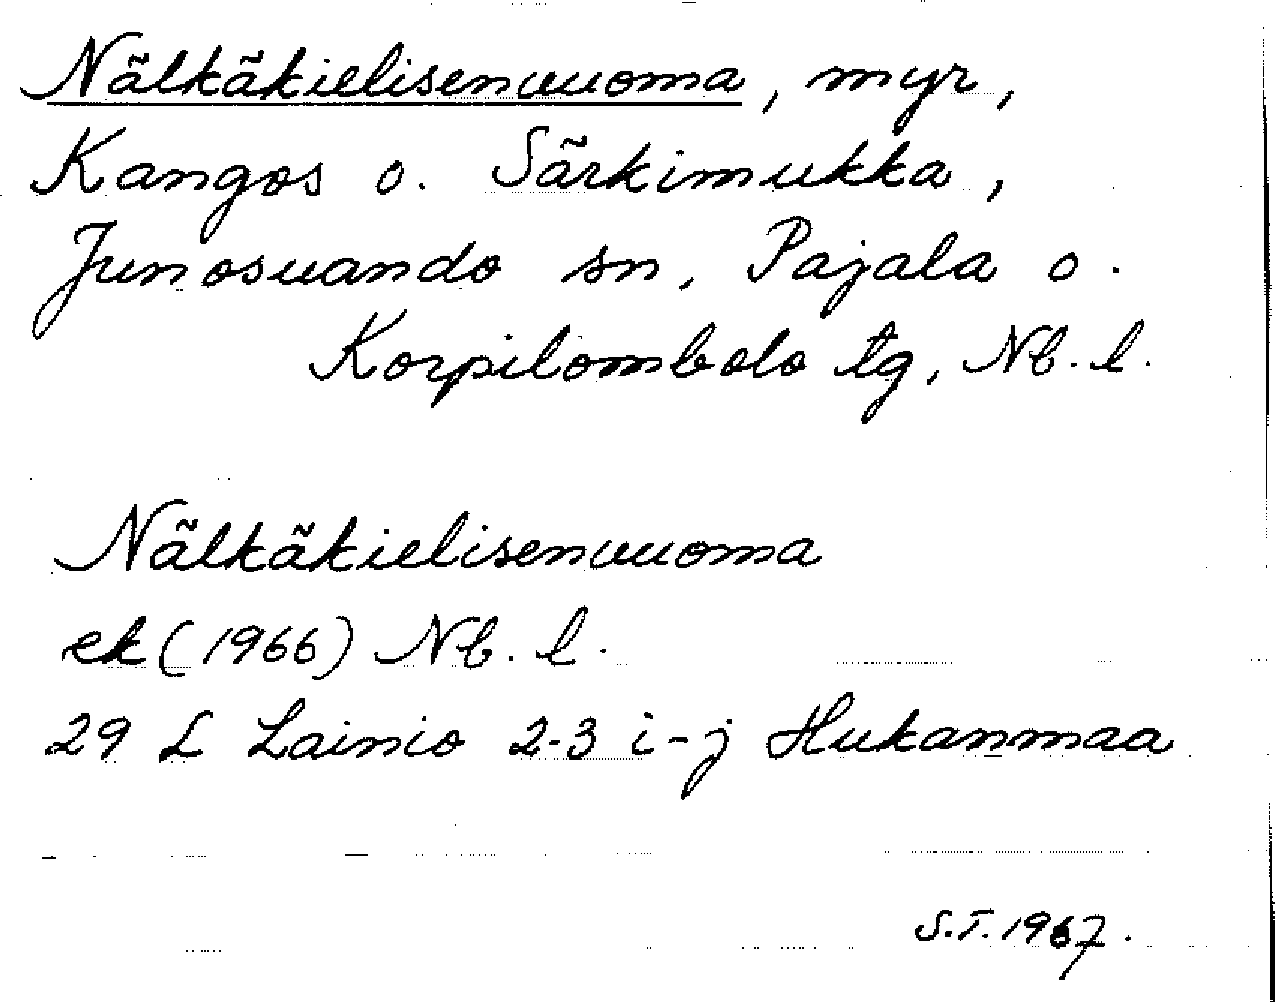 Nälkäkielisenvuoma, myr,
Kangos o. Särkimukka,
Junosuando sn, Pajala o.
Korpilombolo tg, Nb. l.
Nälkäkielisenvuoma
ek (1966) Nb. l.
29 L Lainio 2-3 i-j Hukanmaa
S.T. 1967.